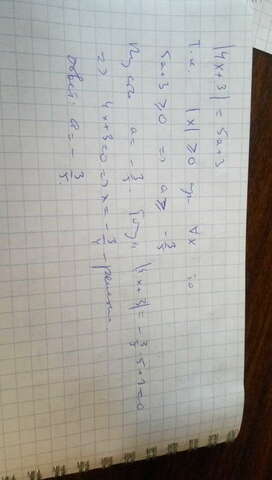 |4x+3| = 5a+3
Т.к. |x| ≥ 0 при ∀x то
5a+3 ≥ 0 => a ≥ -3/5
a = -3/5 |4x+3| = -3/5·5+3=0
=> 4x+3=0 => x = -3/4 - решение
Ответ: a = -3/5.